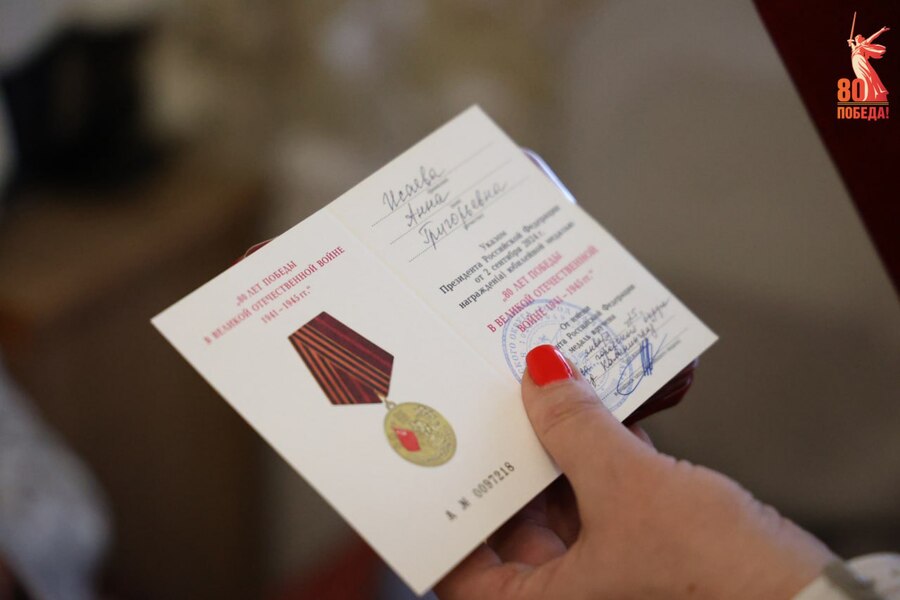 „80 ЛЕТ ПОБЕДЫ
В ВЕЛИКОЙ ОТЕЧЕСТВЕННОЙ ВОЙНЕ
1941–1945 гг.“
А № 0097218
Исаева
Анна
Григорьевна
Указом
Президента Российской Федерации
от 2 сентября 2024 г.
награжден(а) юбилейной медалью
„80 ЛЕТ ПОБЕДЫ
В ВЕЛИКОЙ ОТЕЧЕСТВЕННОЙ
ВОЙНЕ 1941–1945 гг.“
От имени
Российской Федерации
медаль
80
ПОБЕДА!